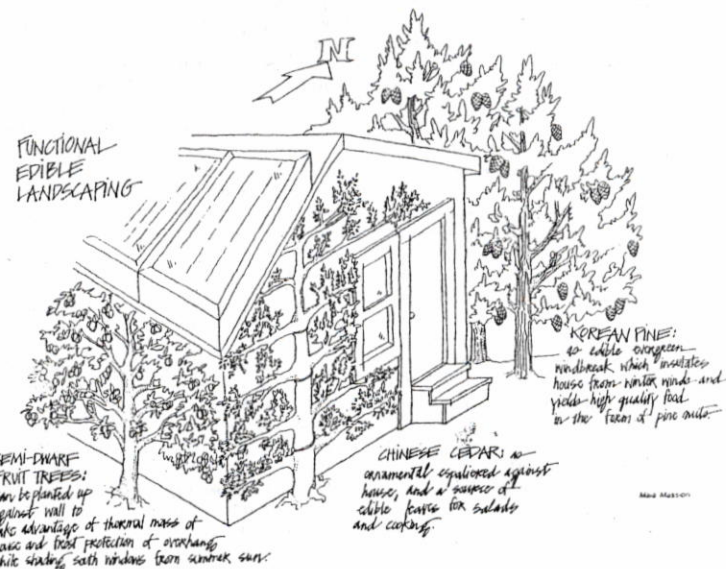 N
FUNCTIONAL
EDIBLE
LANDSCAPING
KOREAN PINE:
an edible evergreen
windbreak which insulates
house from winter winds and
yields high quality food
in the form of pine nuts.
CHINESE CEDAR: an
ornamental espaliered against
house, and a source of
edible leaves for salads
and cooking
EMI-DWARF
FRUIT TREES:
an be planted up
against wall to
ake advantage of thermal mass of
ouse and frost protection of overhang
hile shading south windows from summer sun.